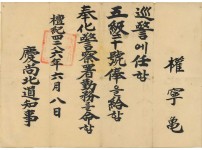 權寧亀
巡警에任함
五級十號俸을給함
奉化警察署勤務를命함
檀紀四二八六年六月八日
慶尙北道知事